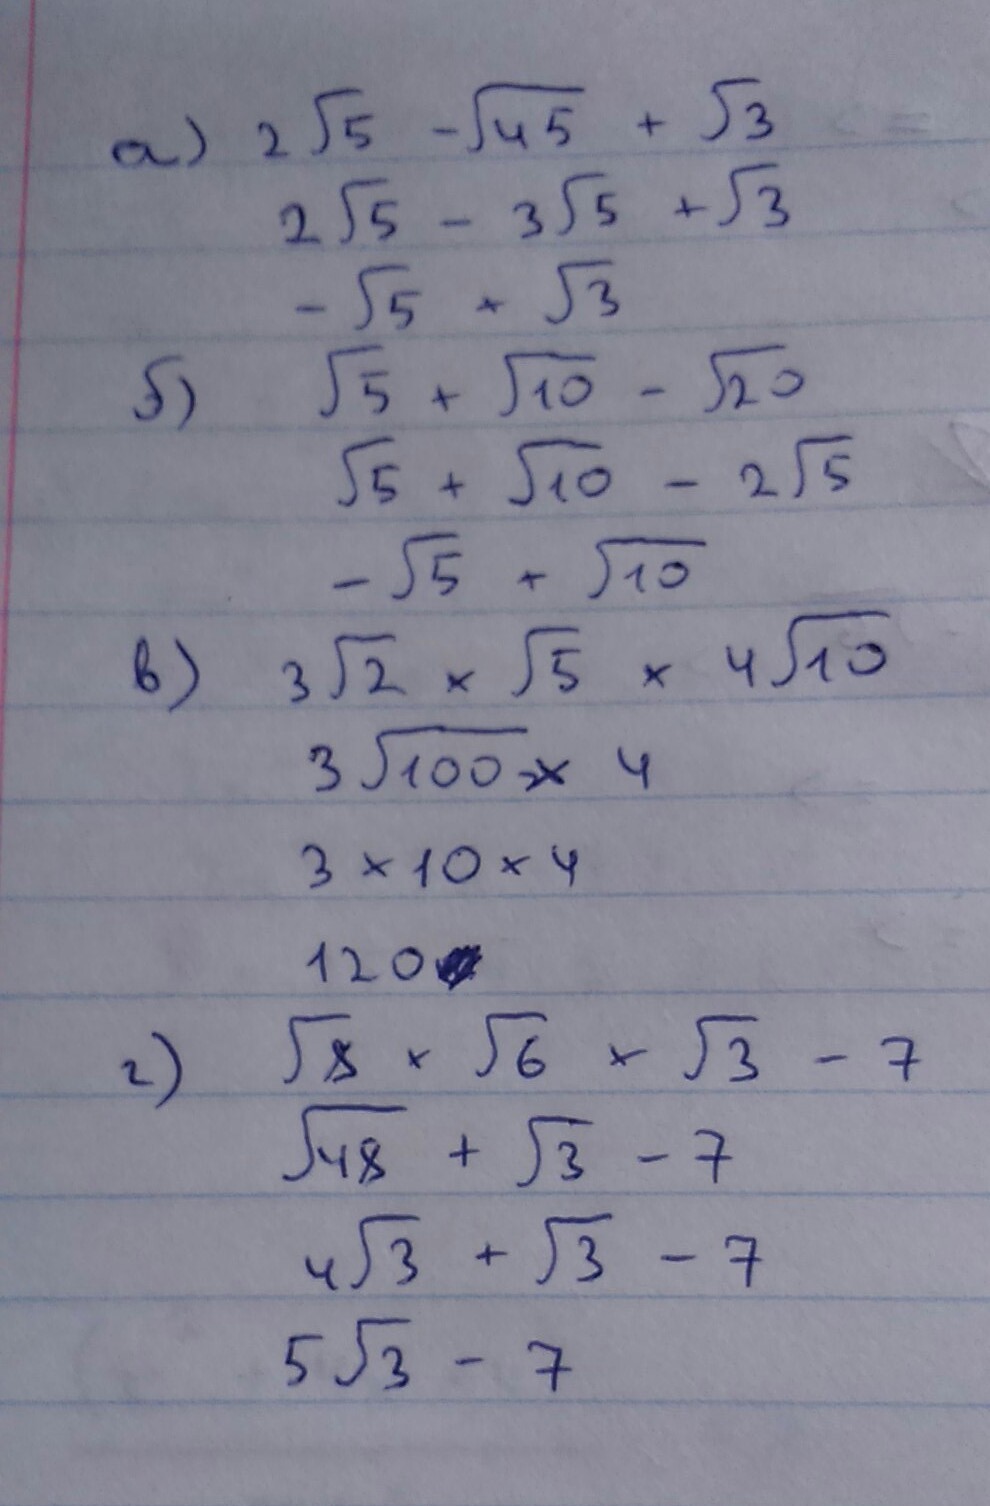 а) 2√5 - √45 + √3
2√5 - 3√5 + √3
-√5 + √3
б) √5 + √10 - √20
√5 + √10 - 2√5
-√5 + √10
в) 3√2 × √5 × 4√10
3√100 × 4
3 × 10 × 4
120
г) √8 × √6 × √3 - 7
√48 + √3 - 7
4√3 + √3 - 7
5√3 - 7